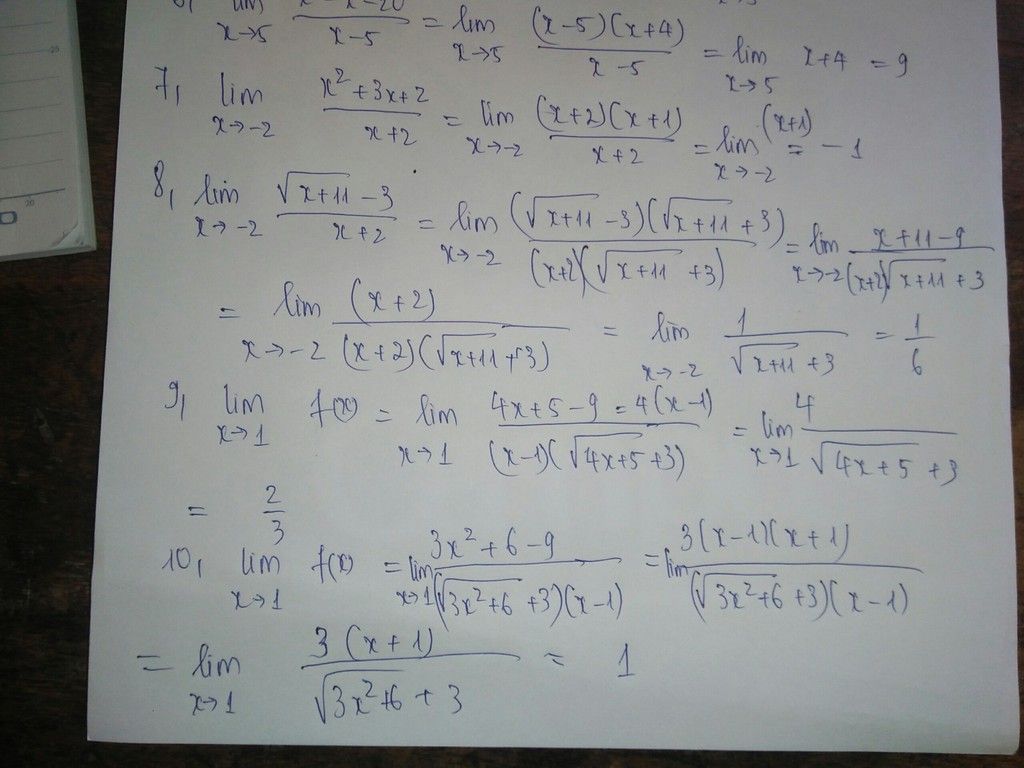 lim x→5 x-5 = lim x→5 (x-5)(x+4) / x-5 = lim x→5 x+4 = 9
7, lim x→-2 x²+3x+2 / x+2 = lim x→-2 (x+2)(x+1) / x+2 = lim x→-2 (x+1) = -1
8, lim x→-2 √x+11 -3 / x+2 = lim x→-2 (√x+11 -3)(√x+11 +3) / (x+2)(√x+11 +3) = lim x→-2 x+11-9 / (x+2)√x+11 +3
= lim x→-2 (x+2) / (x+2)(√x+11 +3) = lim x→-2 1 / √x+11 +3 = 1/6
9, lim x→1 f(x) = lim x→1 4x+5-9 = 4(x-1) / (x-1)(√4x+5 +3) = lim x→1 4 / √4x+5 +3
= 2/3
10, lim x→1 f(x) = lim x→1 3x²+6-9 / (√3x²+6 +3)(x-1) = lim 3(x-1)(x+1) / (√3x²+6 +3)(x-1)
= lim x→1 3(x+1) / √3x²+6 +3 = 1